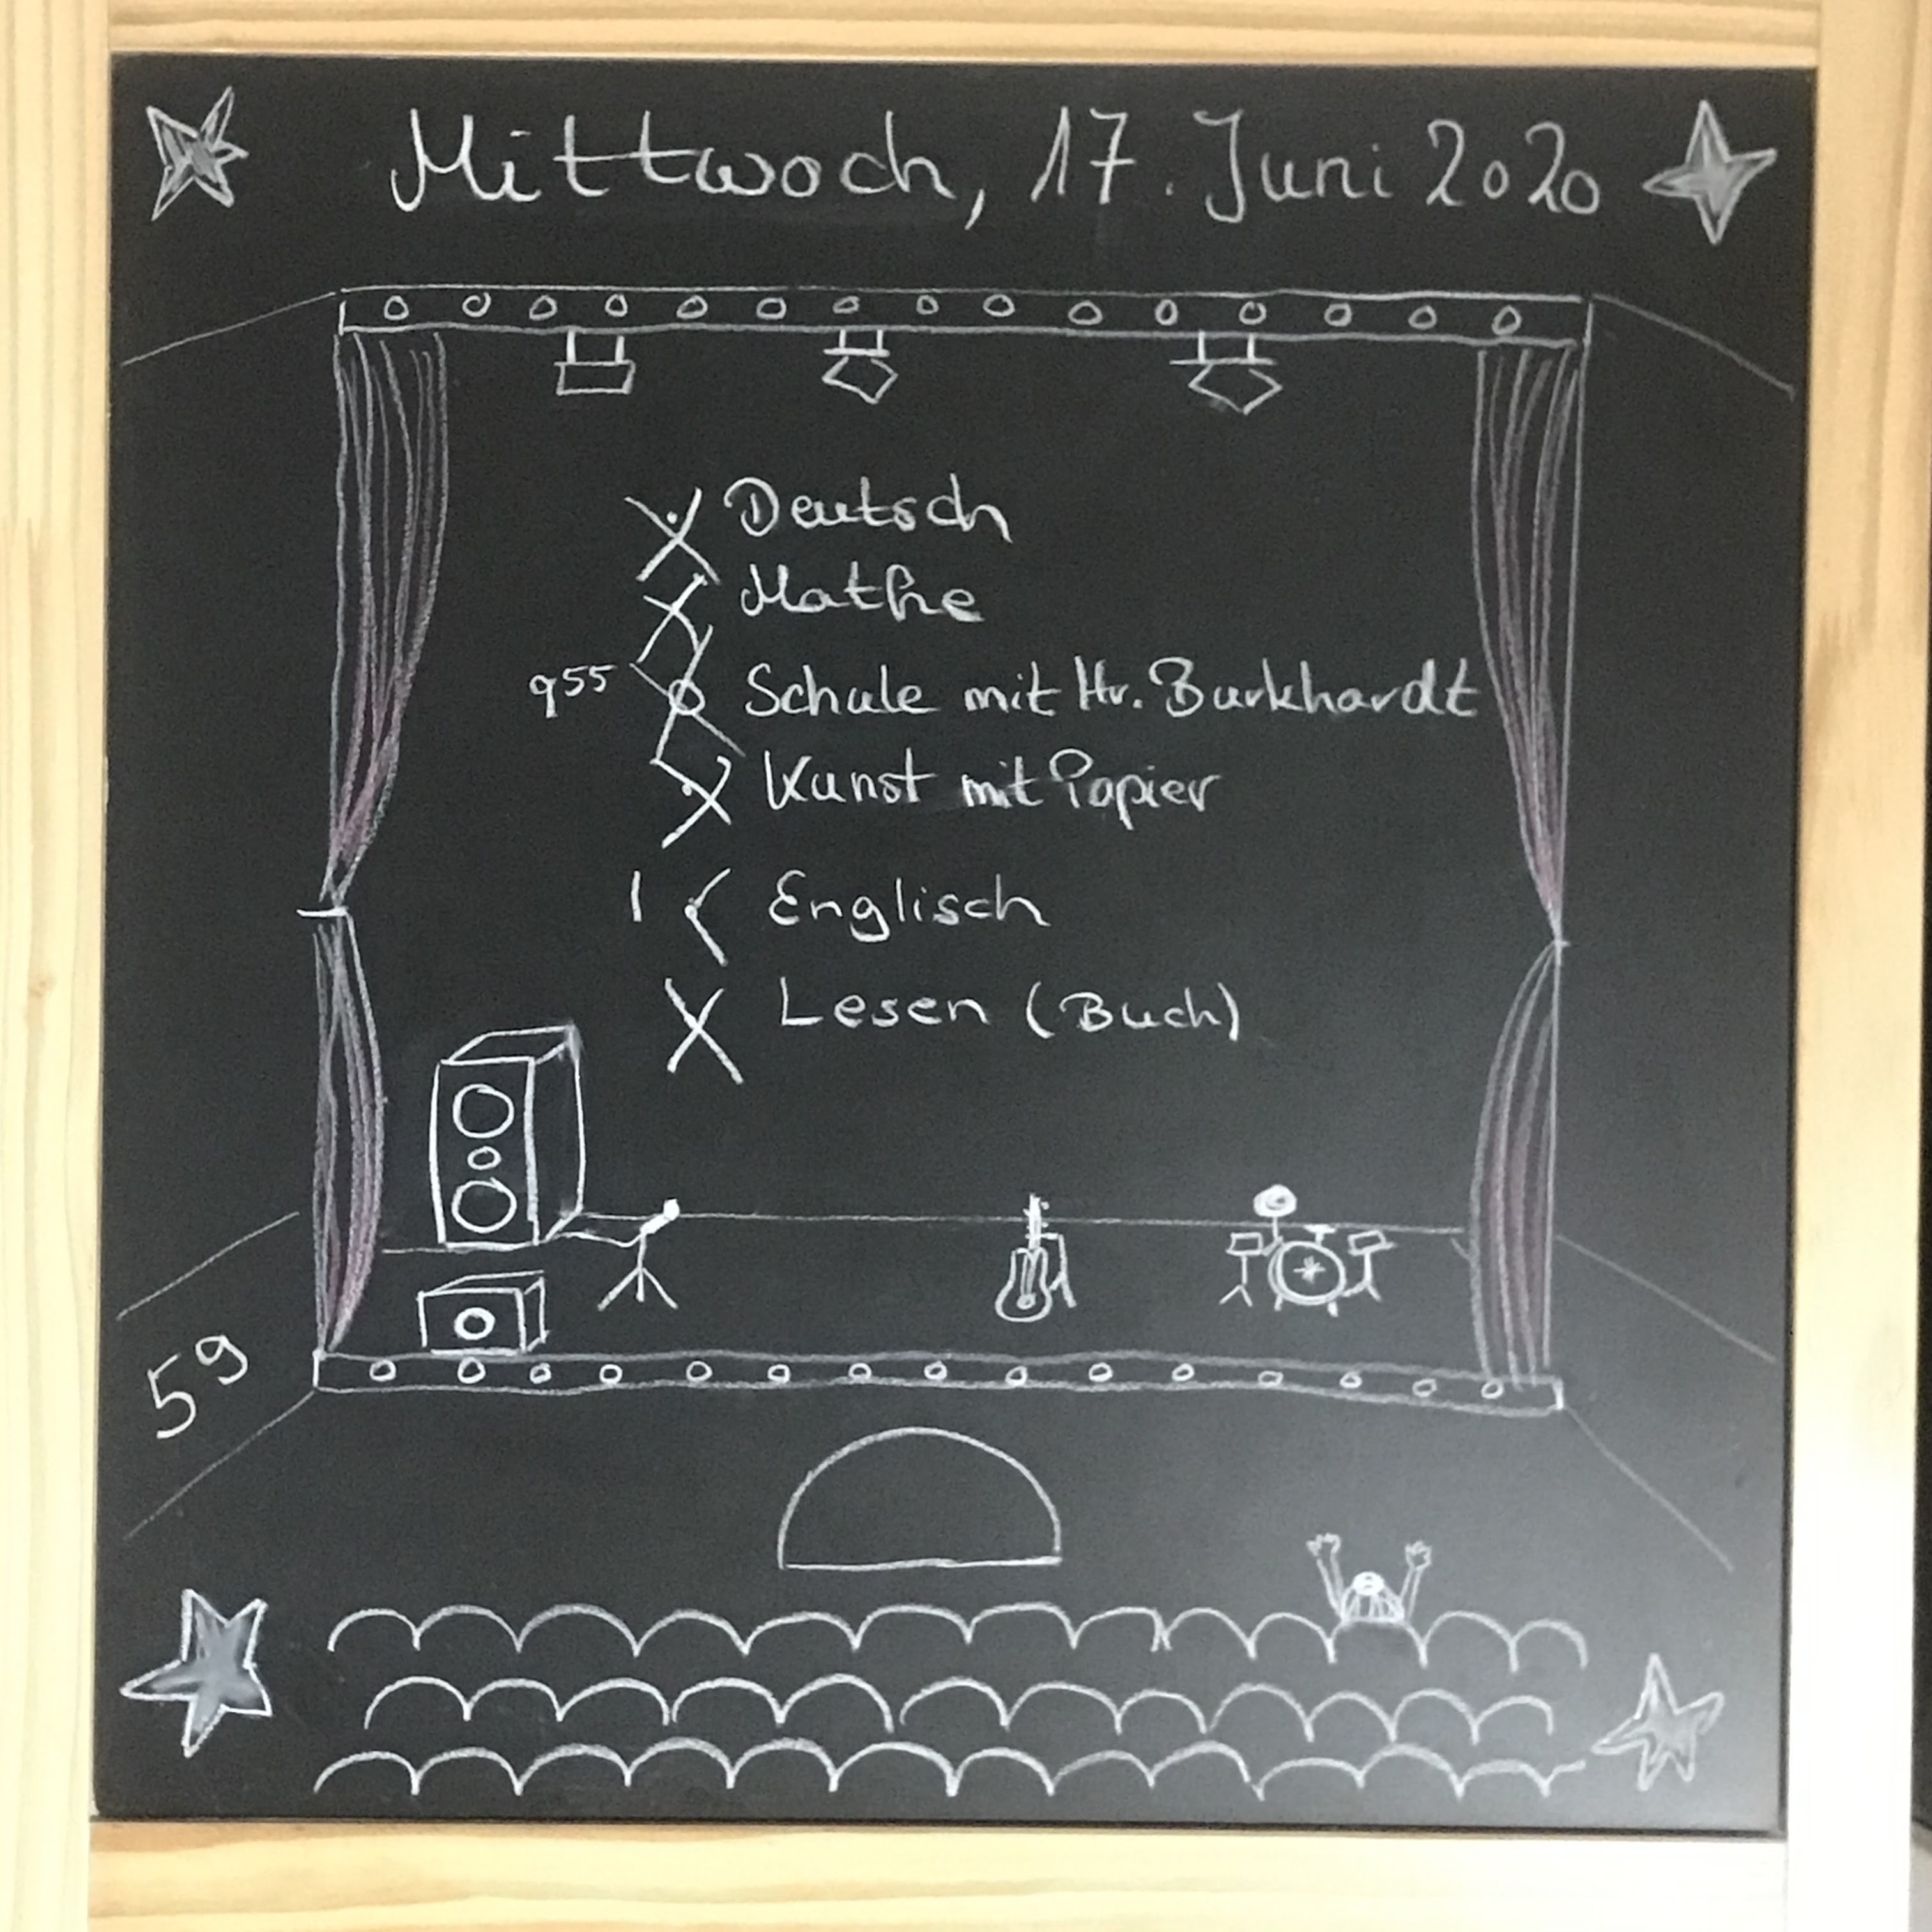 Mittwoch, 17. Juni 2020
Deutsch
Mathe
9 55 Schule mit Hr. Burkhardt
Kunst mit Papier
Englisch
Lesen (Buch)
59